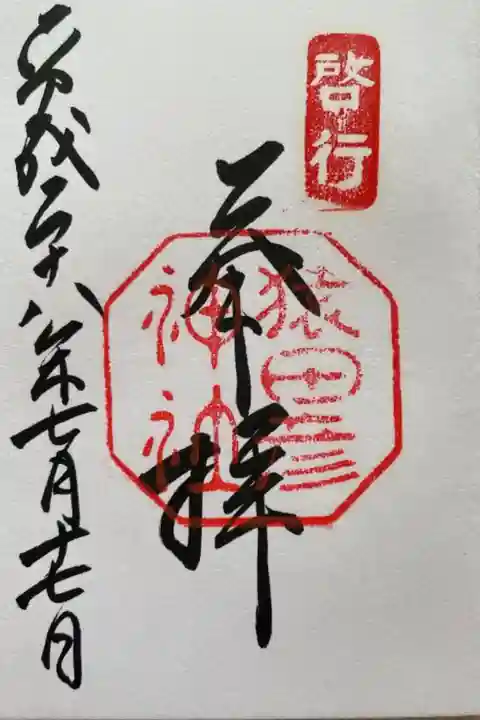 啓行
奉拝
猿田彦
神社
平成二十八年七月廿七日